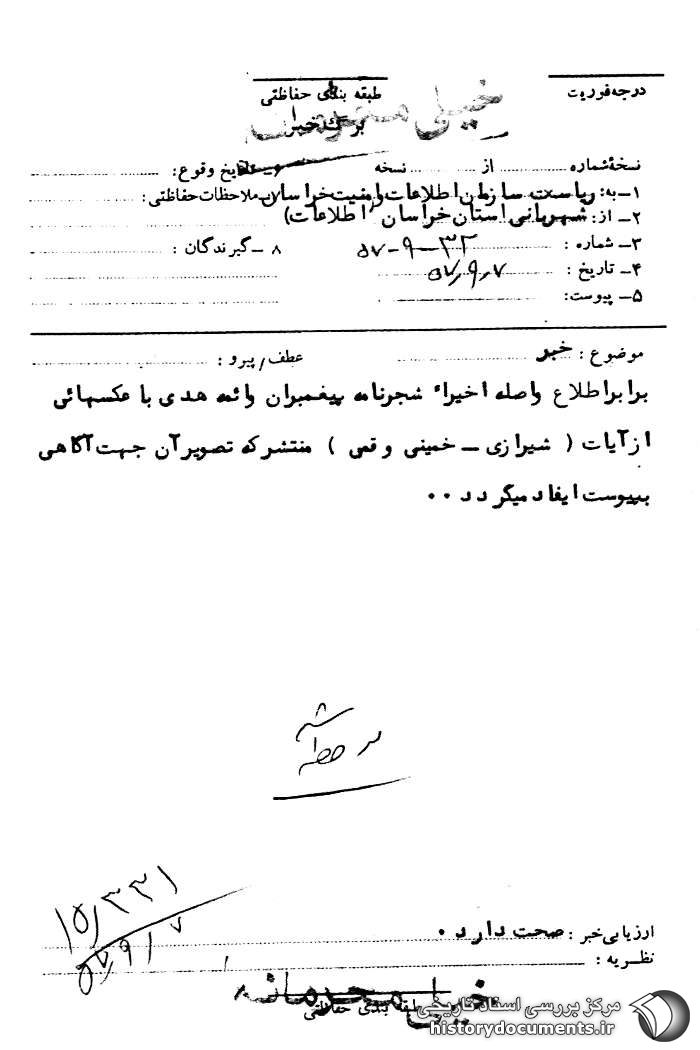 درجه فوریت
طبقه بندی حفاظتی
خیلی محرمانه
برگ خبر
نسخهٔ شماره ........ از ........ نسخه
۶ـ تاریخ وقوع:
۱ـ به: ریاست سازمان اطلاعات و امنیت خراسان
۷ـ ملاحظات حفاظتی:
۲ـ از: شهربانی استان خراسان (اطلاعات)
۳ـ شماره: ۳۲ـ۹ـ۵۷
۸ـ گیرندگان:
۴ـ تاریخ: ۵۷٫۹٫۷
۵ـ پیوست:
موضوع: خبر
عطف/پیرو:
برابر اطلاع واصله اخیراً شجرنامه پیغمبران وائمه هدی با عکسهائی
از آیات ( شیرازی ـ خمینی و قمی ) منتشر که تصویر آن جهت آگاهی
بپیوست ایفاد میگردد ۰۰
۱۵٫۳۳۱
۵۷٫۹٫۷
ارزیابی خبر: صحت دارد ۰
نظریه:
خیلی محرمانه
طبقه بندی حفاظتی
مرکز بررسی اسناد تاریخی
historydocuments.ir